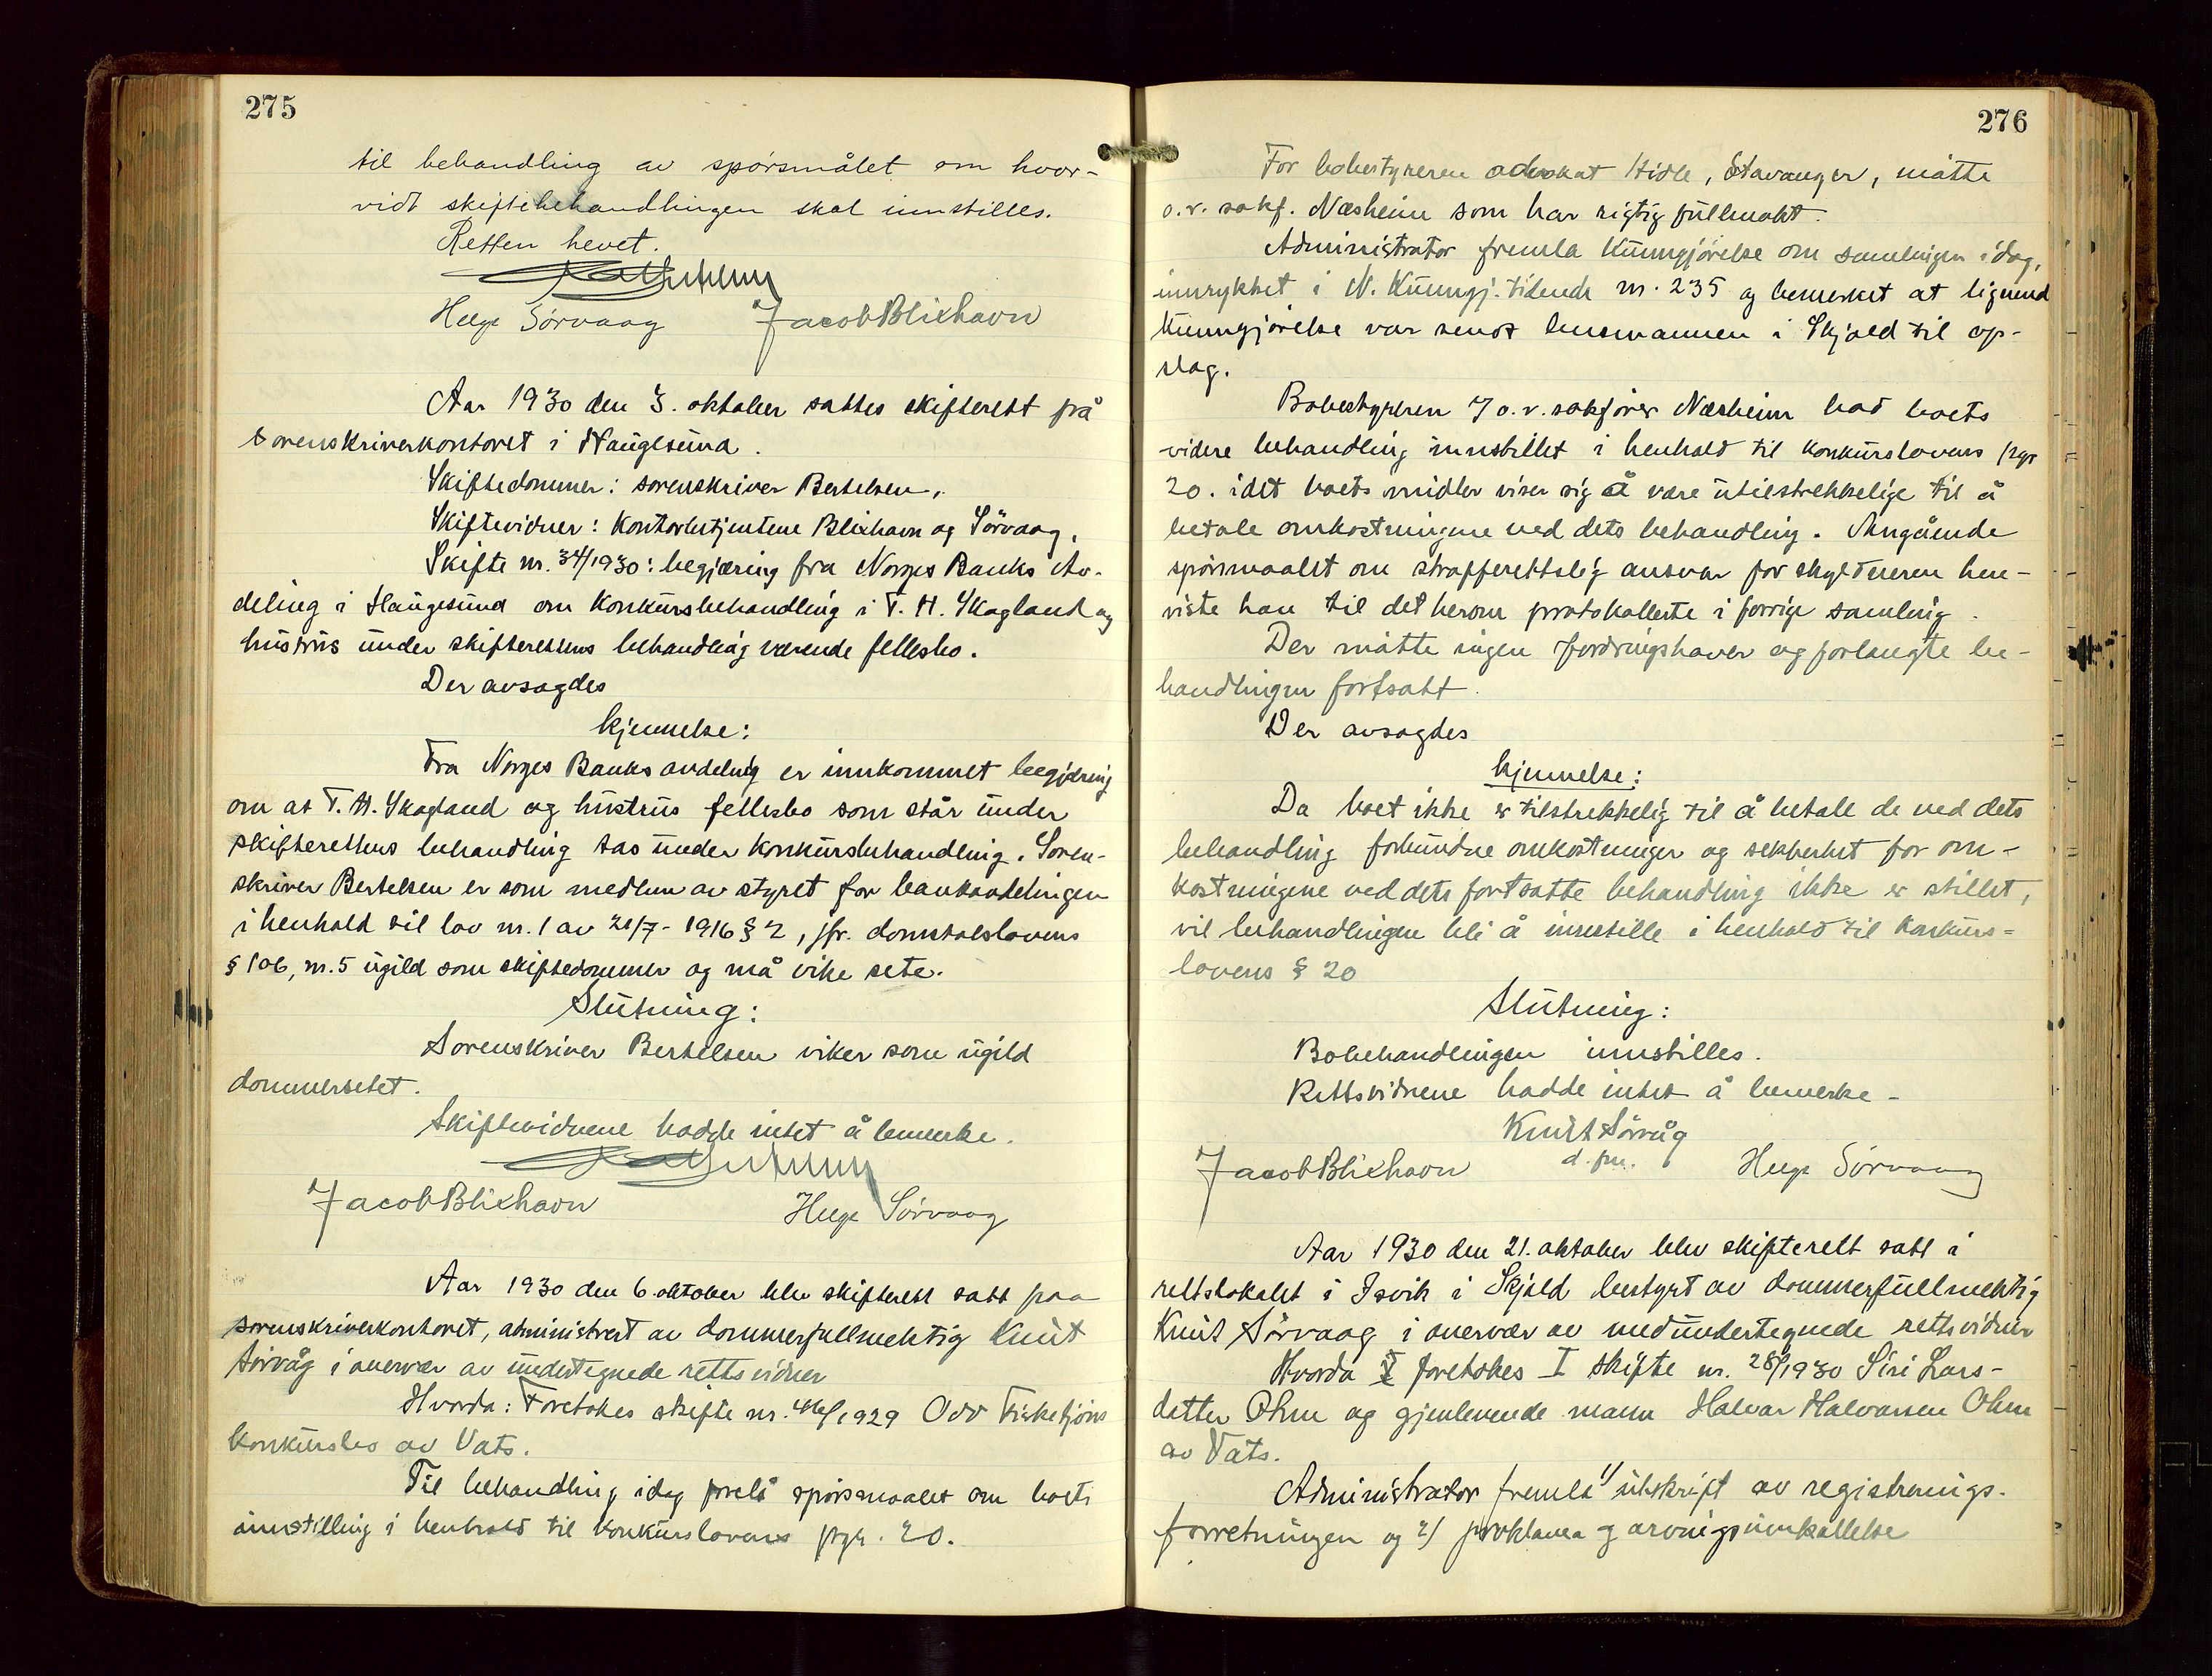 275
til behandling av spørsmålet om hvor-
vidt skiftebehandlingen skal innstilles.
Retten hevet.
Helge Sørvaag JacobBlixhavn
Aar 1930 den 3. oktober sattes skifterett på
sorenskriverkontoret i Haugesund.
Skiftedommer: sorenskriver Bertelsen.
Skiftevidner: Kontorbetjentene Blixhavn og Sørvaag.
Skifte nr. 34/1930: begjæring fra Norges Banks Av-
deling i Haugesund om konkursbehandling i T. H. Skogland og
hustrus under skifterettens behandling værende fellesbo.
Der avsagdes
kjennelse:
Fra Norges Banks avdeling er innkommet begjæring
om at T. H. Skogland og hustrus fellesbo som står under
skifterettens behandling tas under konkursbehandling. Soren-
skriver Bertelsen er som medlem av styret for bankavdelingen
i henhold til lov nr. 1 av 21/7-1916 § 2, jfr. domstolslovens
§ 106, nr. 5 ugild som skiftedommer og må vike sete.
Slutning:
Sorenskriver Bertelsen viker som ugild
dommersetet.
Skiftevidnene hadde intet å bemerke.
JacobBlixhavn Helge Sørvaag
Aar 1930 den 6. oktober blev skifterett satt paa
sorenskriverkontoret, administrert av dommerfullmektig Knut
Sørvåg i overvær av undertegnede rettsvidner
Hvorda: Foretokes skifte nr. 46/1929 Odd Fisketjøns
konkursbo av Vats.
Til behandling idag forelå spørsmaalet om boets
innstilling i henhold til konkurslovens pgr. 20.
276
For bobestyreren advokat Hidle, Stavanger, møtte
o.r. sakf. Næsheim som har rigtig fullmakt.
Administrator fremla kunngjørelse om samlingen idag,
innrykket i N. Kunngj. tidende nr. 235 og bemerket at lignend
kunngjørelse var sendt lensmannen i Skjold til op-
slag.
Bobestyreren / o.r. sakfører Næsheim bad boets
videre behandling innstillet i henhold til konkurslovens pgr
20. idet boets midler viser sig å være utilstrekkelige til å
betale omkostningene ved dets behandling. Angående
spørsmaalet om strafferettslig ansvar for skyldneren hen-
viste han til det herom protokollerte i forrige samling.
Der møtte ingen fordringshaver og forlangte be-
handlingen fortsatt.
Der avsagdes
kjennelse:
Da boet ikke er tilstrekkelig til å betale de ved dets
behandling forbundne omkostninger og sikkerhet for om-
kostningene ved dets fortsatte behandling ikke er stillet,
vil behandlingen bli å innstille i henhold til konkurs-
lovens § 20
Slutning:
Bobehandlingen innstilles.
Rettsvidnene hadde intet å bemerke -
Knut Sørvåg
d. fm.
JacobBlixhavn Helge Sørvaag
Aar 1930 den 21. oktober blev skifterett satt i
rettslokalet i Isvik i Skjold bestyrt av dommerfullmektig
Knut Sørvaag i overvær av medundertegnede rettsvidner
Hvorda foretokes I Skifte nr. 28/1930 Siri Lars-
datter Ohm og gjenlevende mann Halvar Halvarsen Ohm
av Vats.
Administrator fremla 1/ utskrift av registrerings-
forretningen og 2/ proklama og arvingsinnkallelse